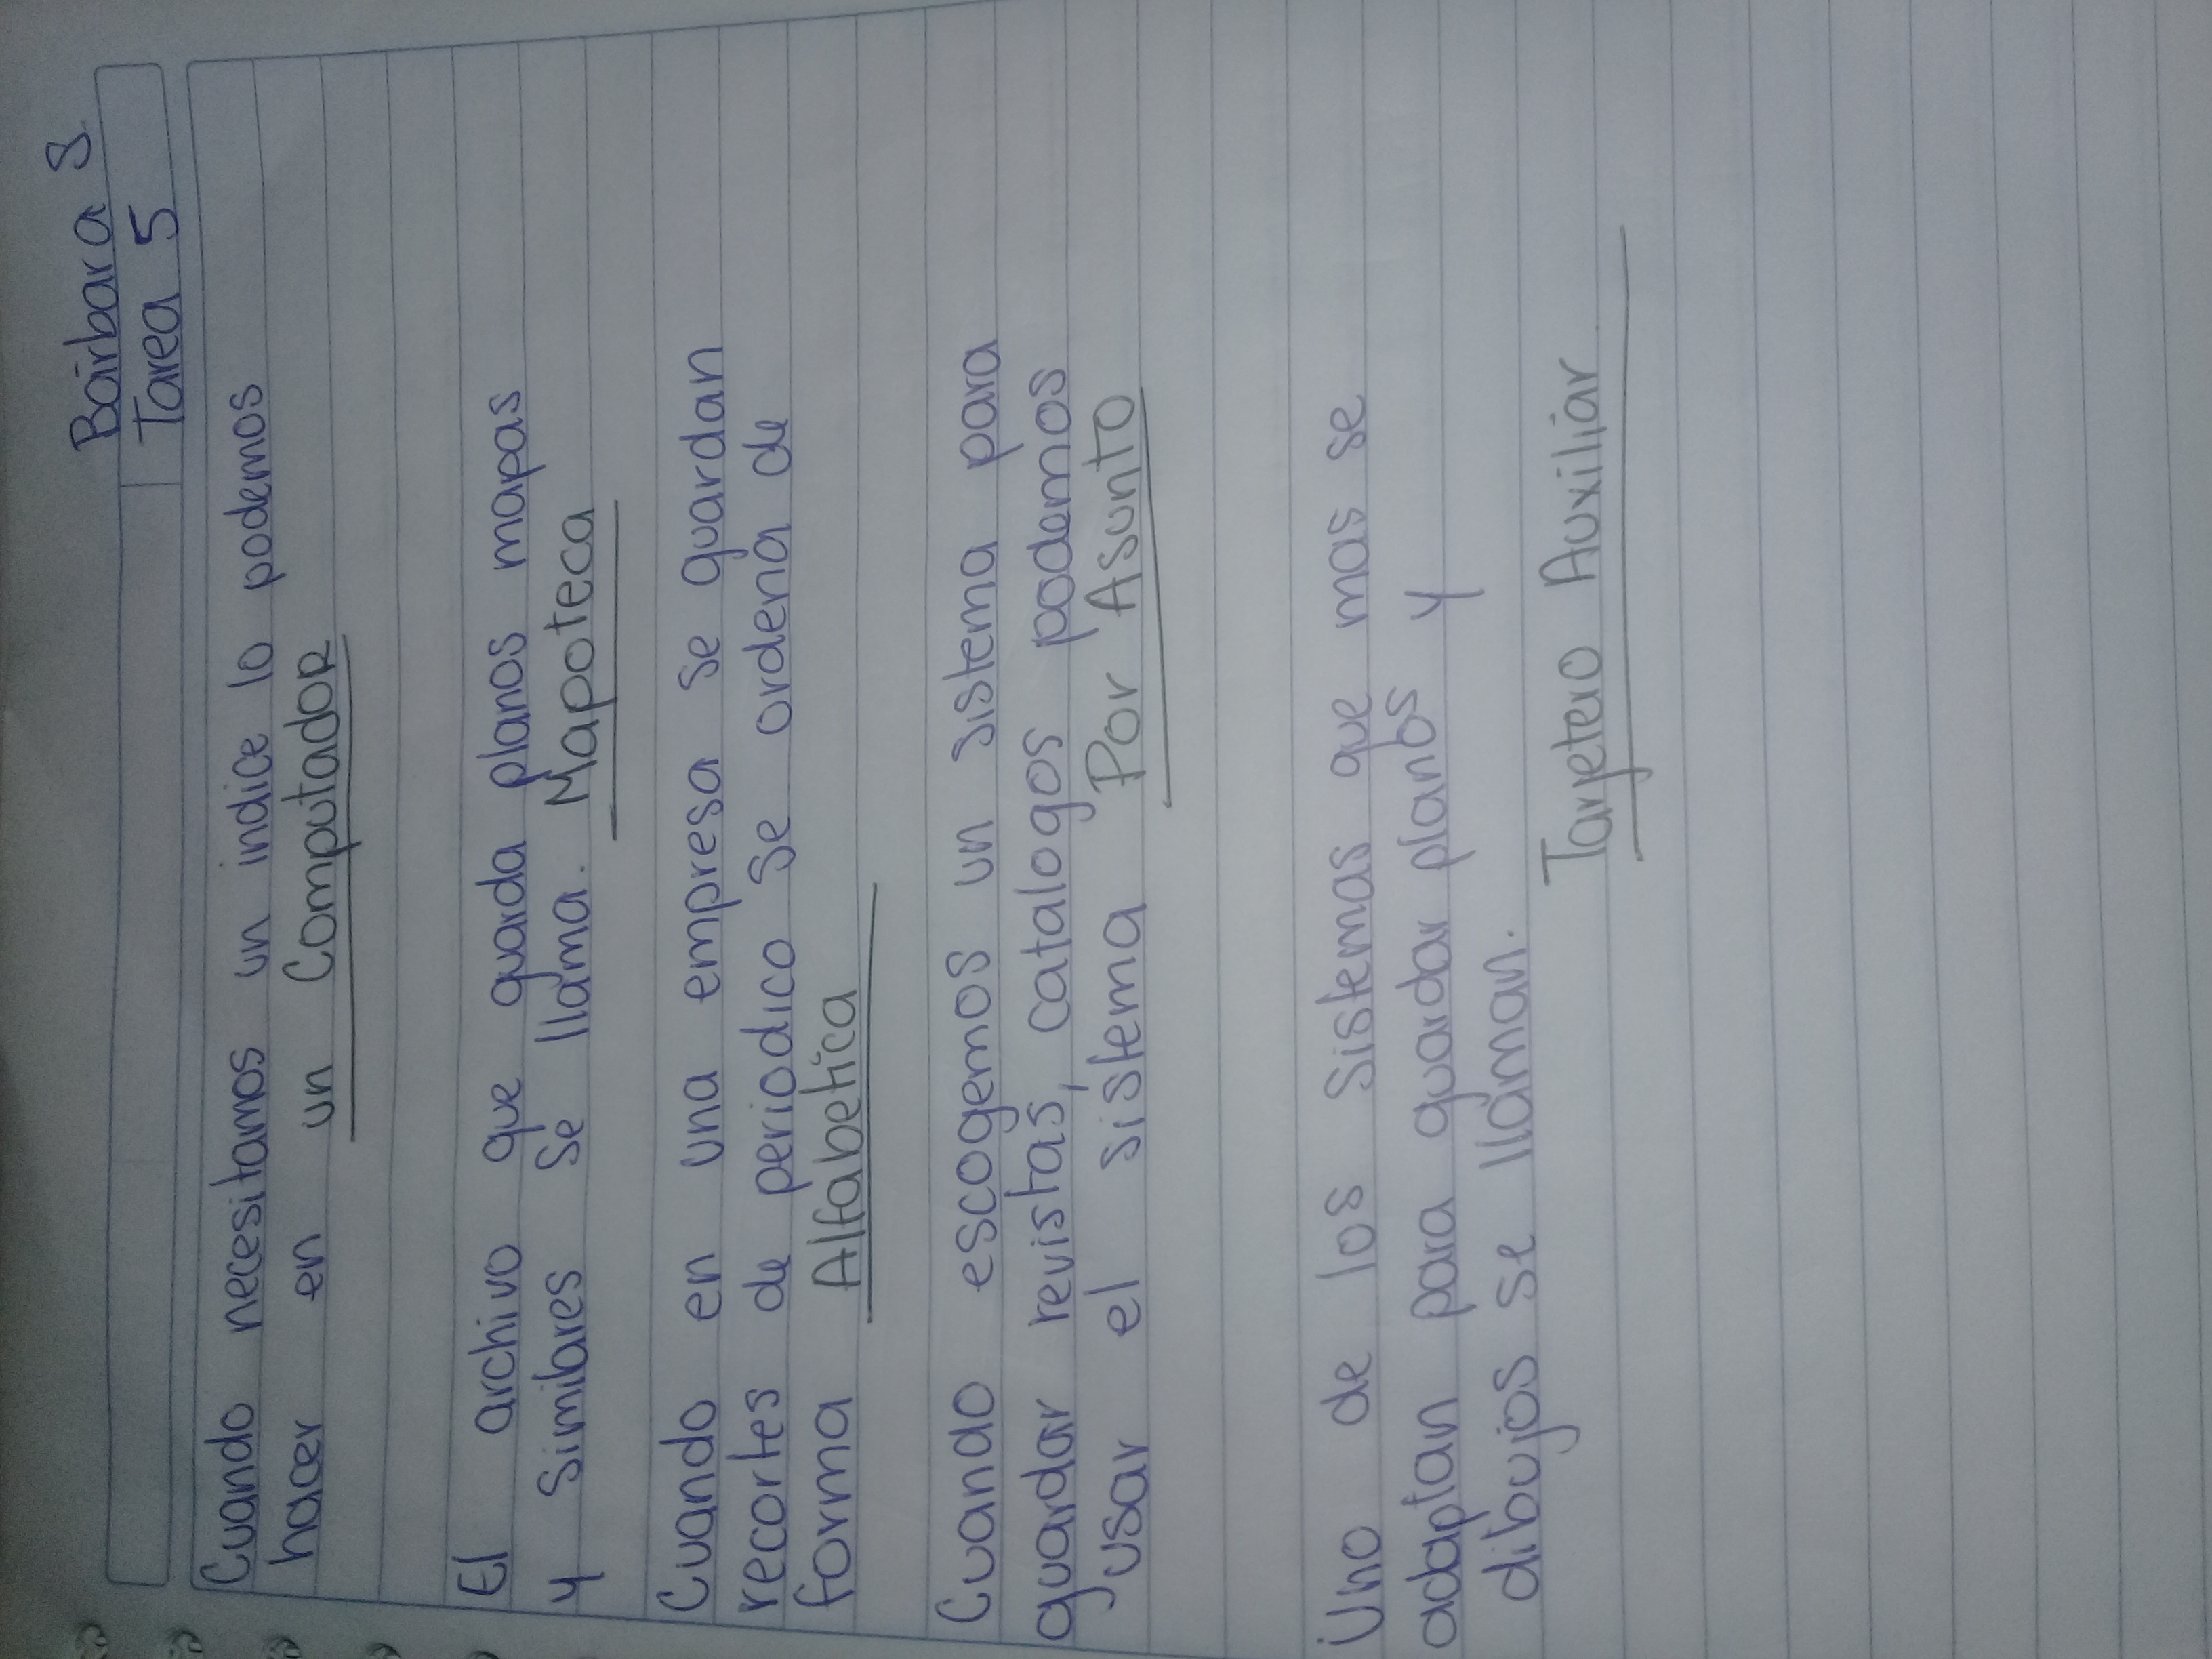 Bárbara S.
Tarea 5
Cuando necesitamos un indice lo podemos
hacer en un Computador
El archivo que guarda planos mapas
y Similares Se llama. Mapoteca
Cuando en una empresa se guardan
recortes de periodico Se ordena de
forma Alfabetica
Cuando escogemos un sistema para
guardar revistas, catalogos podemos
usar el sistema Por Asunto
Uno de los Sistemas que mas se
adaptan para guardar planos y
dibujos Se llaman.
Tarjetero Auxiliar